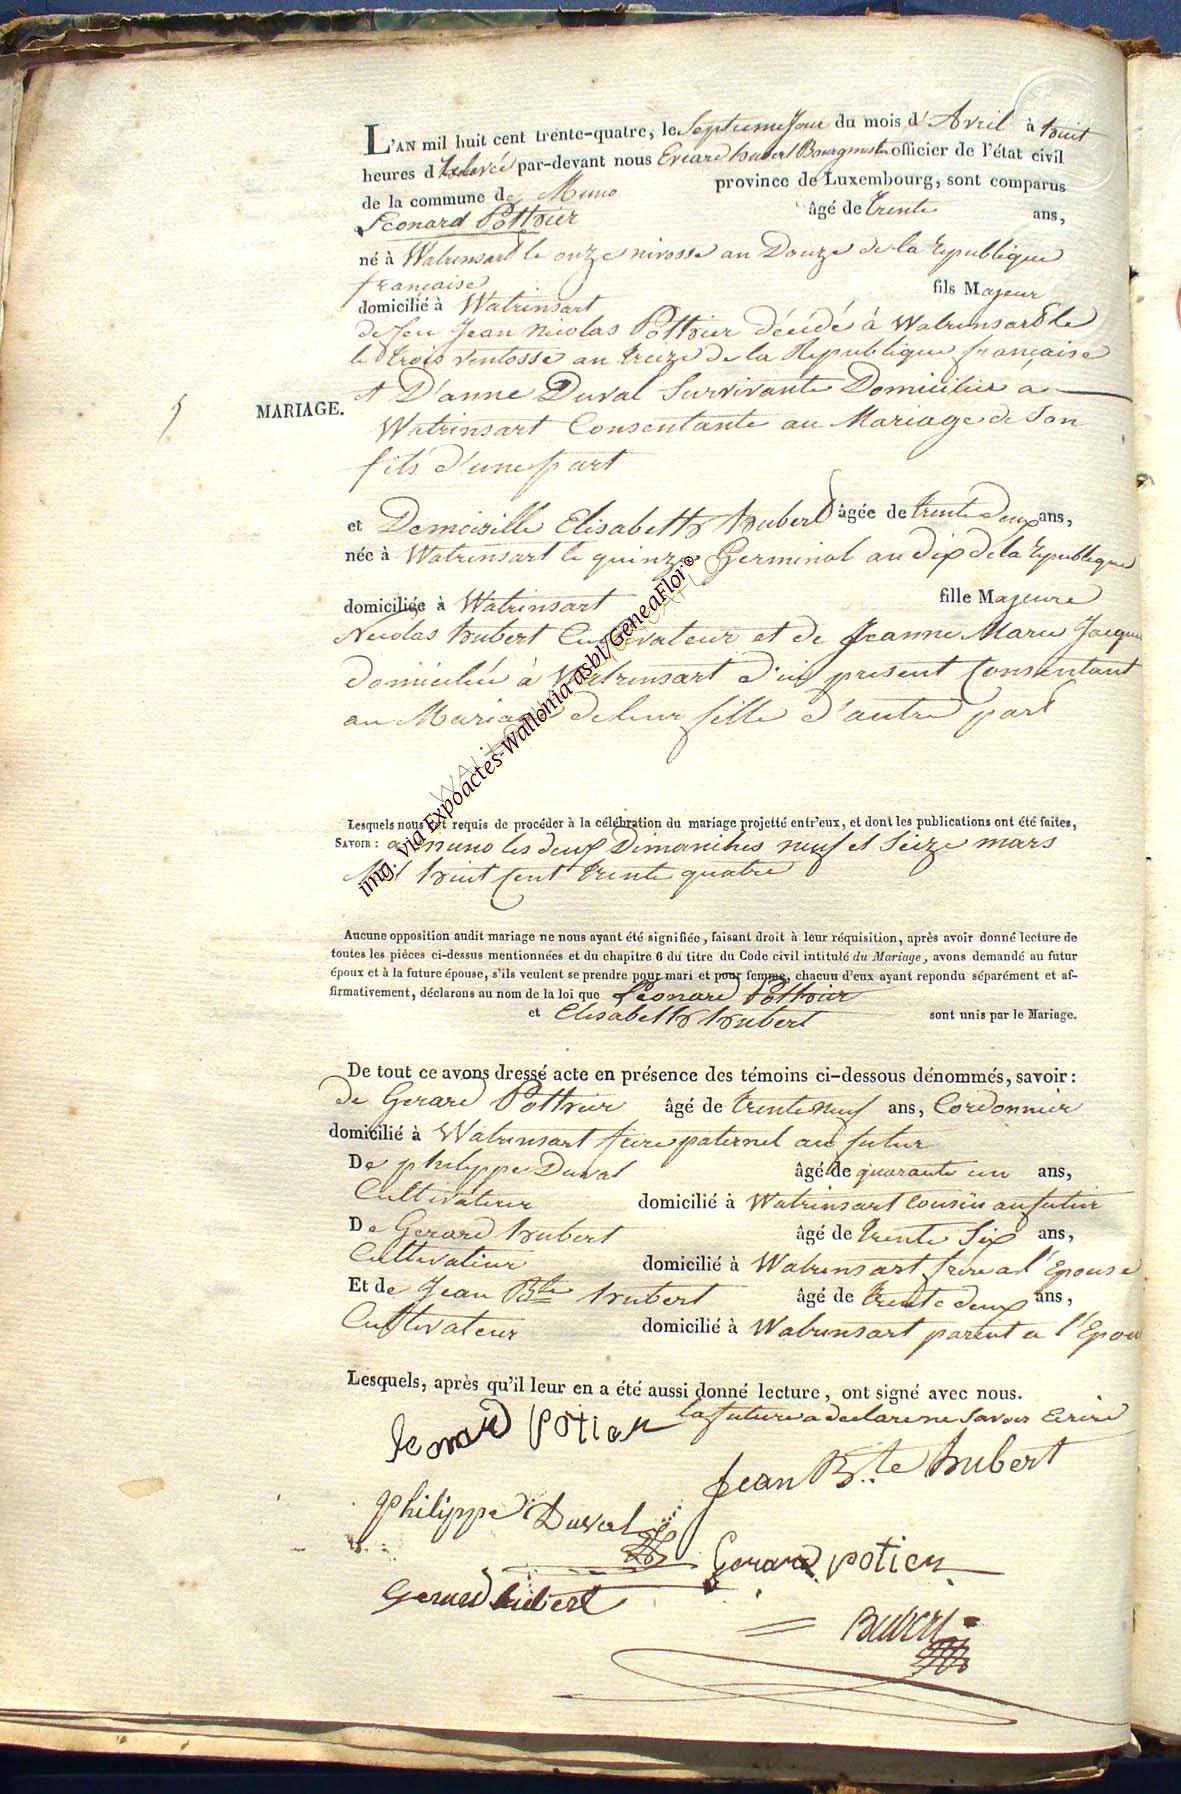 L'AN mil huit cent trente-quatre, le Septieme Jour du mois d'Avril à huit
heures d par-devant nous Evrard hubert Bourgmestre officier de l'état civil
de la commune de Muno province de Luxembourg, sont comparus
Leonard Pothier âgé de trente ans,
né à Watrinsart le onze nivosse an Douze de la republique
française
domicilié à Watrinsart fils Majeur
de feu Jean Nicolas Pothier décédé à Watrinsart le
le trois ventosse an treize de la Republique française
et D'anne Duval Survivante Domiciliée a
MARIAGE.
5
Watrinsart Consentante au Mariage de Son
fils d'une part
et Demoiselle Elisabeth hubert âgée de trente deux ans,
née à Watrinsart le quinze Germinal an dix de la republique
domiciliée à Watrinsart fille Majeure
Nicolas hubert Cultivateur et de Jeanne Marie Jacque
domiciliée à Watrinsart d'ici present Consentant
au Mariage de leur fille d'autre part
img. via Expoactes-Wallonia asbl/GeneaFlor©
Lesquels nous ont requis de procéder à la célébration du mariage projetté entr'eux, et dont les publications ont été faites,
SAVOIR : a muno les deux Dimanches neuf et Seize mars
Mil huit Cent trente quatre
Aucune opposition audit mariage ne nous ayant été signifiée, faisant droit à leur réquisition, après avoir donné lecture de
toutes les pièces ci-dessus mentionnées et du chapitre 6 du titre du Code civil intitulé du Mariage, avons demandé au futur
époux et à la future épouse, s'ils veulent se prendre pour mari et pour femme, chacun d'eux ayant repondu séparément et af-
firmativement, déclarons au nom de la loi que Léonard Pothier
et Elisabeth hubert sont unis par le Mariage.
De tout ce avons dressé acte en présence des témoins ci-dessous dénommés, savoir :
de Gerard Pothier âgé de trente neuf ans, Cordonnier
domicilié à Watrinsart frere paternel au futur
De philippe Duval âgé de quarante un ans,
Cultivateur domicilié à Watrinsart cousin au futur
De Gerard hubert âgé de trente Six ans,
Cultivateur domicilié à Watrinsart frere a l'Epouse
Et de Jean Bte hubert âgé de trente deux ans,
Cultivateur domicilié à Watrinsart parent a l'Epou
Lesquels, après qu'il leur en a été aussi donné lecture, ont signé avec nous.
la future a declare ne Savoir Ecrire
Leonard Potier
Jean B.te hubert
Philippe Duval
Gerard potier
Gerard hubert